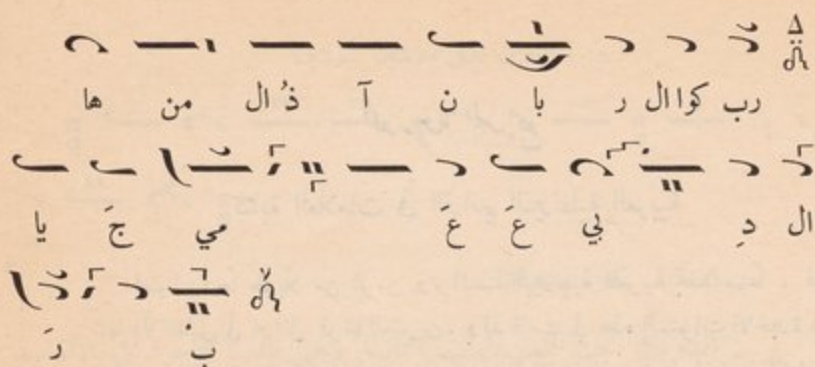 رب كوا ال ر با ن آ ذُ ال من ها
ال دِ بي عَ عَ مي جَ يا
ب رَ